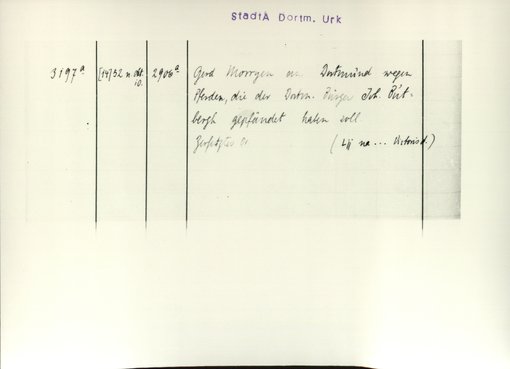 StadtA Dortm. Urk
3197a. [14]32 n okt 10. 2906a Gerd Morrgen an Dortmund wegen
Pferden, die der Dortm. Bürger Joh. Büt-
bergh gepfändet haben soll
(Lij na ... Victoris d.)